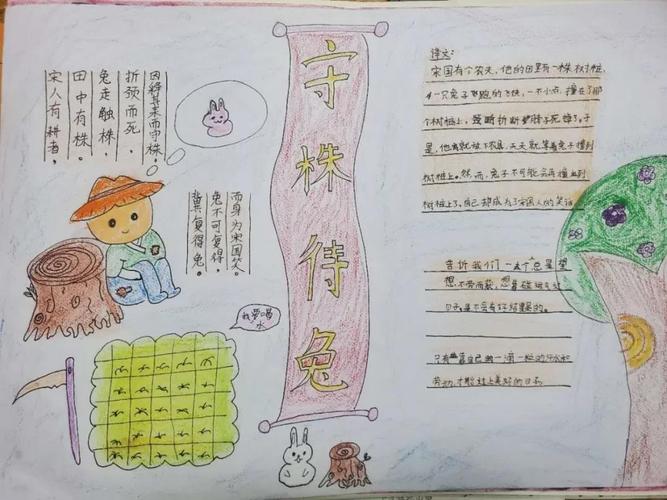 守株待兔
宋人有耕者，
田中有株。
兔走触株，
折颈而死。
因释其耒而守株，
冀复得兔。
兔不可复得，
而身为宋国笑。
我要喝
水
译文：
宋国有个农夫，他的田里有一株树桩，
一只兔子飞跑的飞快，一不小心，撞在了那
个树桩上，折断脖子死掉了。于
是，他就放下农具，天天就等着兔子撞到
树桩上。然而，兔子不可能会再撞到
树桩上了，自己却成为了宋国人的笑话
告诉我们一个
想不劳而获，
日子是不会有好结果的。
只有靠自己的一滴一粒的汗水和
劳动，才能过上美好的日子